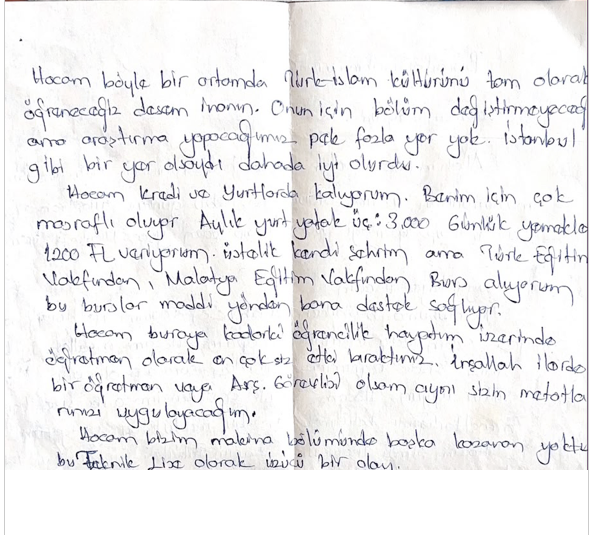 Hocam böyle bir ortamda Türk-islam kültürünü tam olarak
öğreneceğiz desem inanın. Onun için bölüm değiştirmeyeceğ
ama araştırma yapacağımız pek fazla yer yok. istanbul
gibi bir yer olsaydı dahada iyi olurdu.
Hocam kredi ve Yurtlarda kalıyorum. Benim için çok
masraflı oluyor. Aylık yurt yatak üc: 3.000 Günlük yemekle
1200 TL veriyorum. üstelik kendi şehrim ama Türk Eğitim
Vakfından, Malatya Eğitim Vakfından Burs alıyorum
bu burslar maddi yönden bana destek sağlıyor.
Hocam buraya kadarki öğrencilik hayatım üzerinde
öğretmen olarak en çok siz etki bıraktınız. inşallah ilerde
bir öğretmen veya Arş. Görevlisi olsam aynı sizin metotla
rınızı uygulayacağım.
Hocam bizim makina bölümünde başka kazanan yoktu
bu Teknik Lise olarak üzücü bir olay.